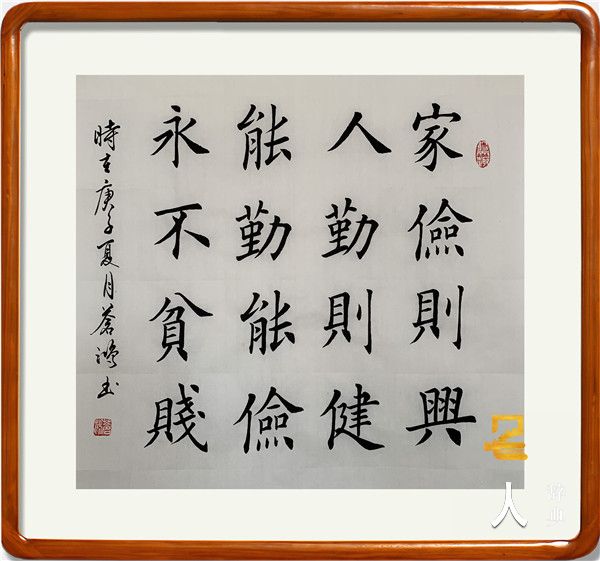 家儉則興
人勤則健
能勤能儉
永不貧賤
時在庚子夏月蒼鴻书
人